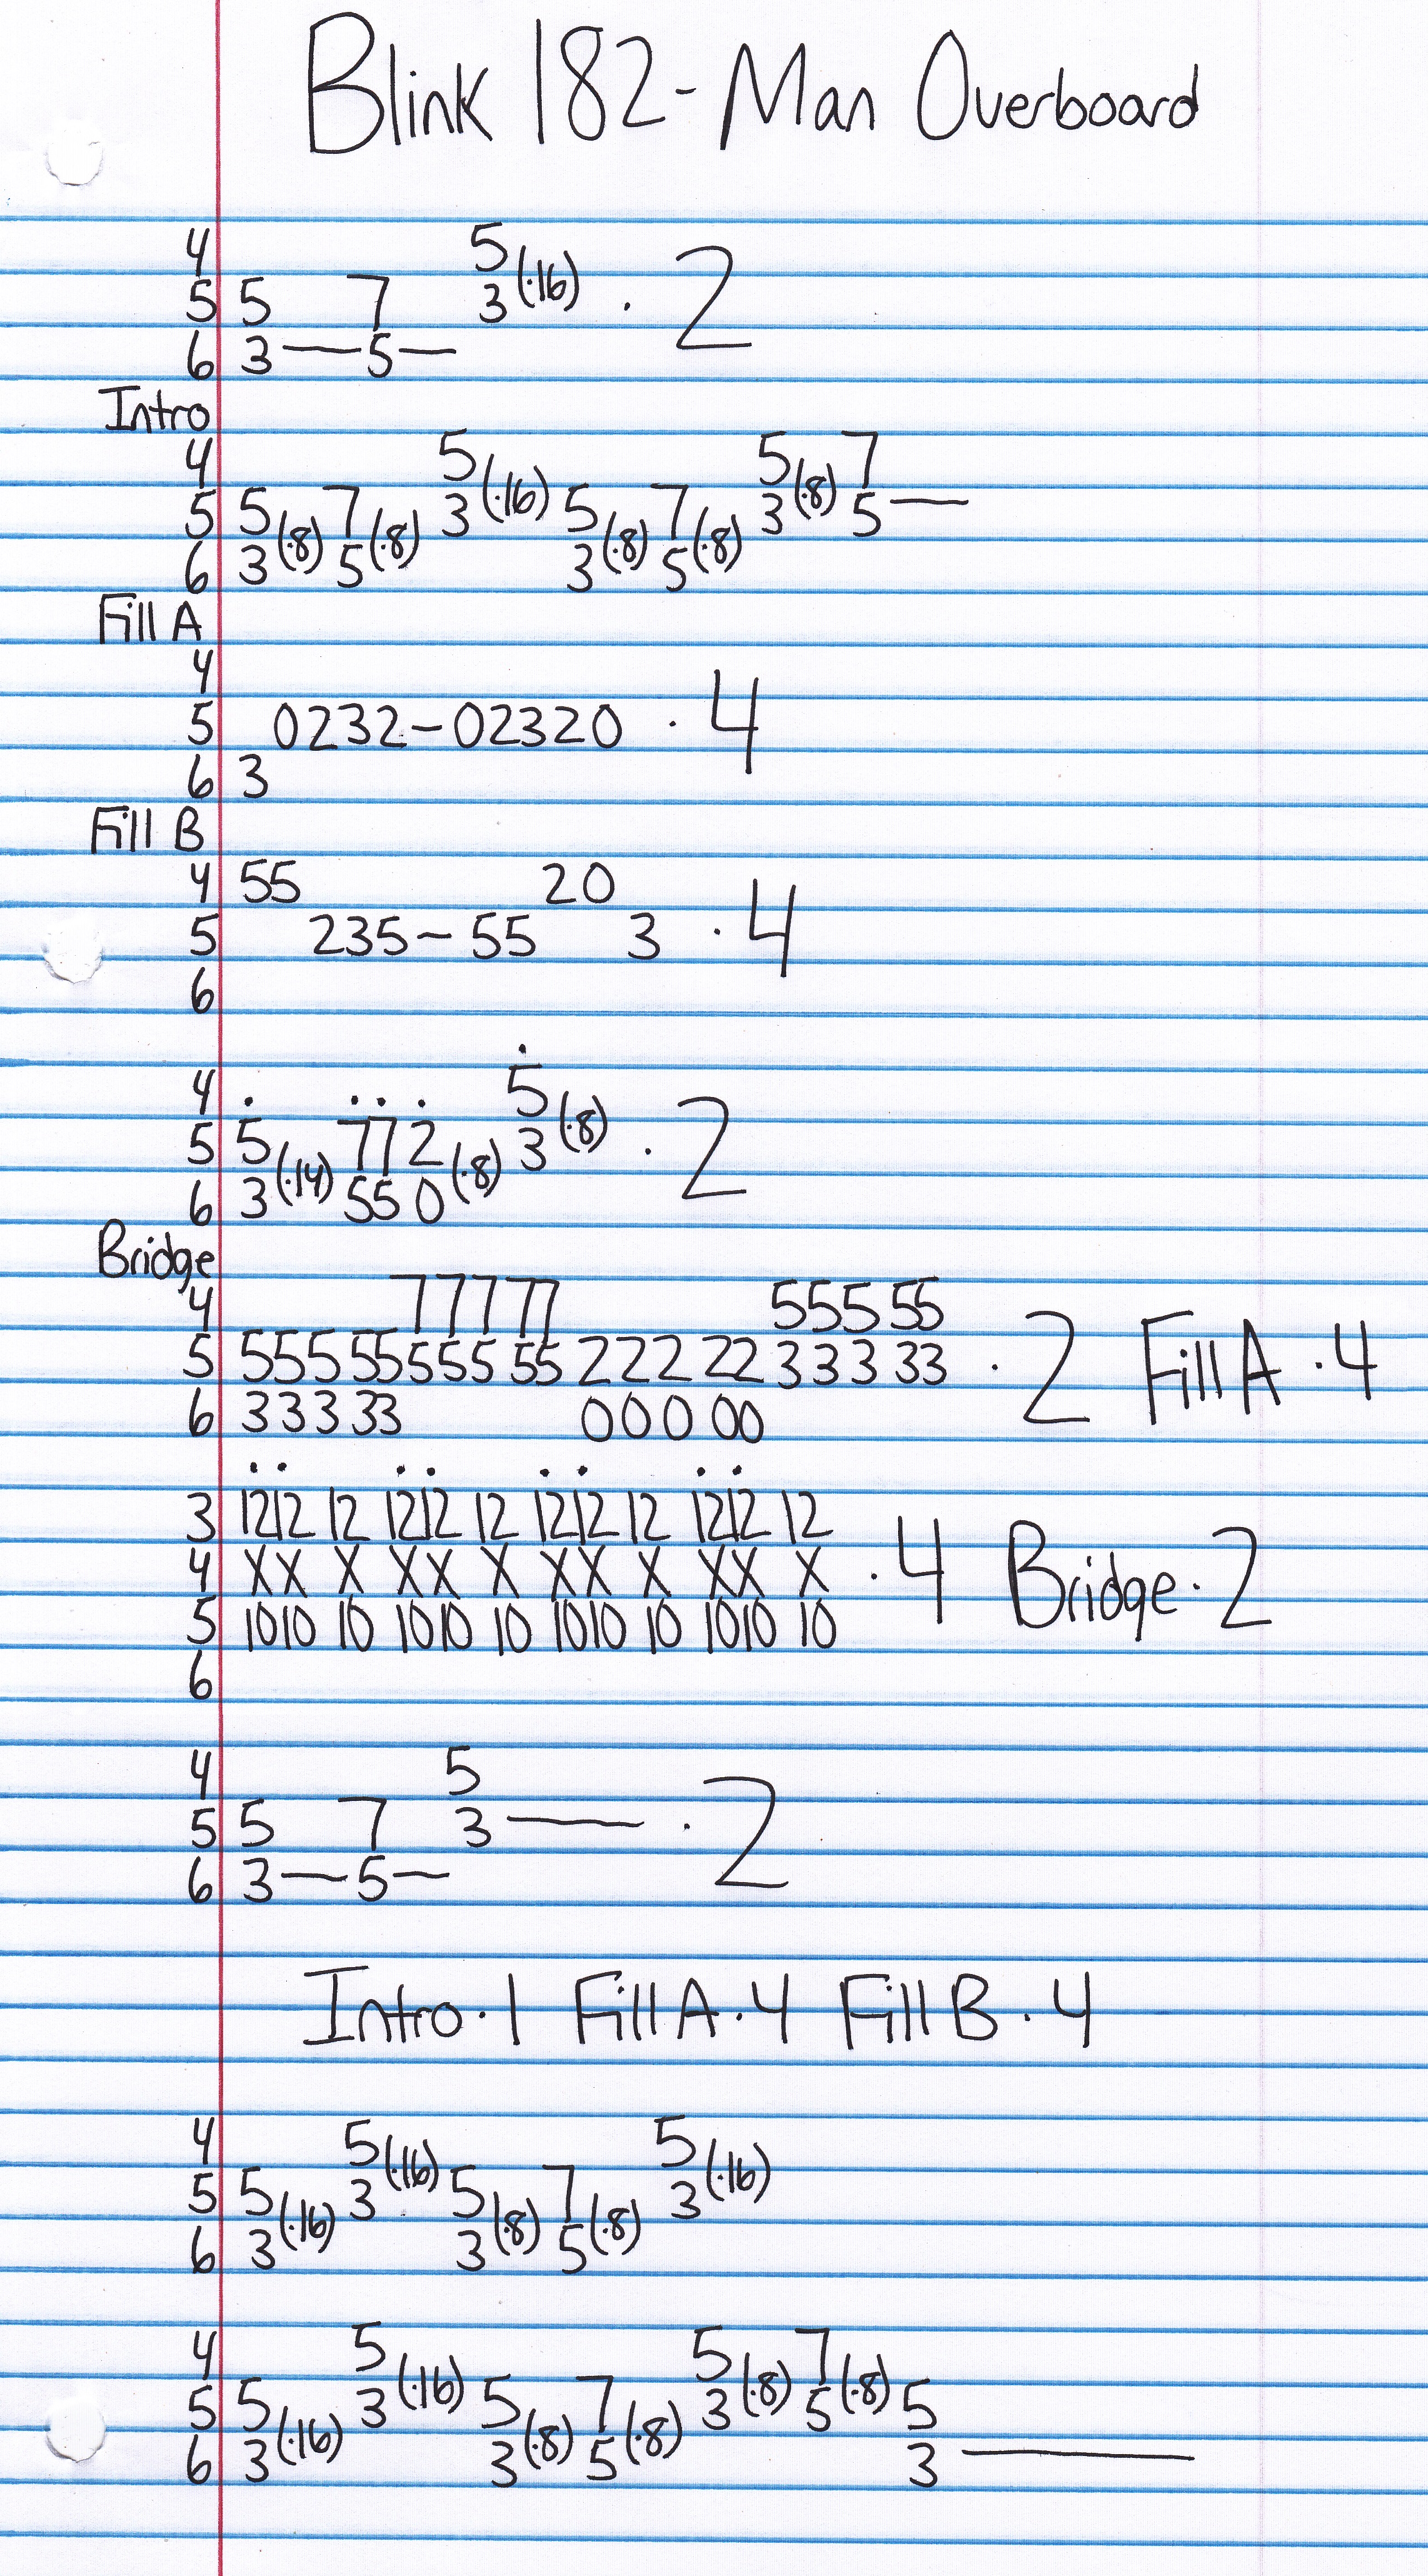 Blink 182 - Man Overboard
4 5
5 5 7 3 (·16) · 2
6 3 — 5 —
Intro
4 5 5 7
5 5 7 3 (·16) 5 7 3 (·8) 5 —
6 3 (·8) 5 (·8) 3 (·8) 5 (·8)
Fill A
4
5 0232-02320 · 4
6 3
Fill B
4 55 20
5 235-55 3 · 4
6
4 5
5 5 772 3 (·8) · 2
6 3 (·14) 55 0 (·8)
Bridge
4 777 77 555 55
5 555 55 555 55 222 22 333 33 · 2 Fill A · 4
6 333 33 000 00
3 1212 12 1212 12 1212 12 1212 12
4 XX X XX X XX X XX X · 4 Bridge · 2
5 1010 10 1010 10 1010 10 1010 10
6
4 5
5 5 7 3 — · 2
6 3 — 5 —
Intro · 1 Fill A · 4 Fill B · 4
4 5 5
5 5 3 (·16) 5 7 3 (·16)
6 3 (·16) 3 (·8) 5 (·8)
4 5 5 7
5 5 3 (·16) 5 7 3 (·8) 5 (·8) 5
6 3 (·16) 3 (·8) 5 (·8) 3 —